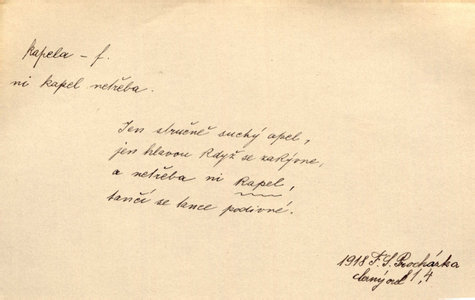 kapela – f.
ni kapel netřeba.
Jen stručně suchý apel,
jen hlavou když se zakývne,
a netřeba ni kapel,
tančí se tance podivné.
1918 F. S. Procházka
1,4